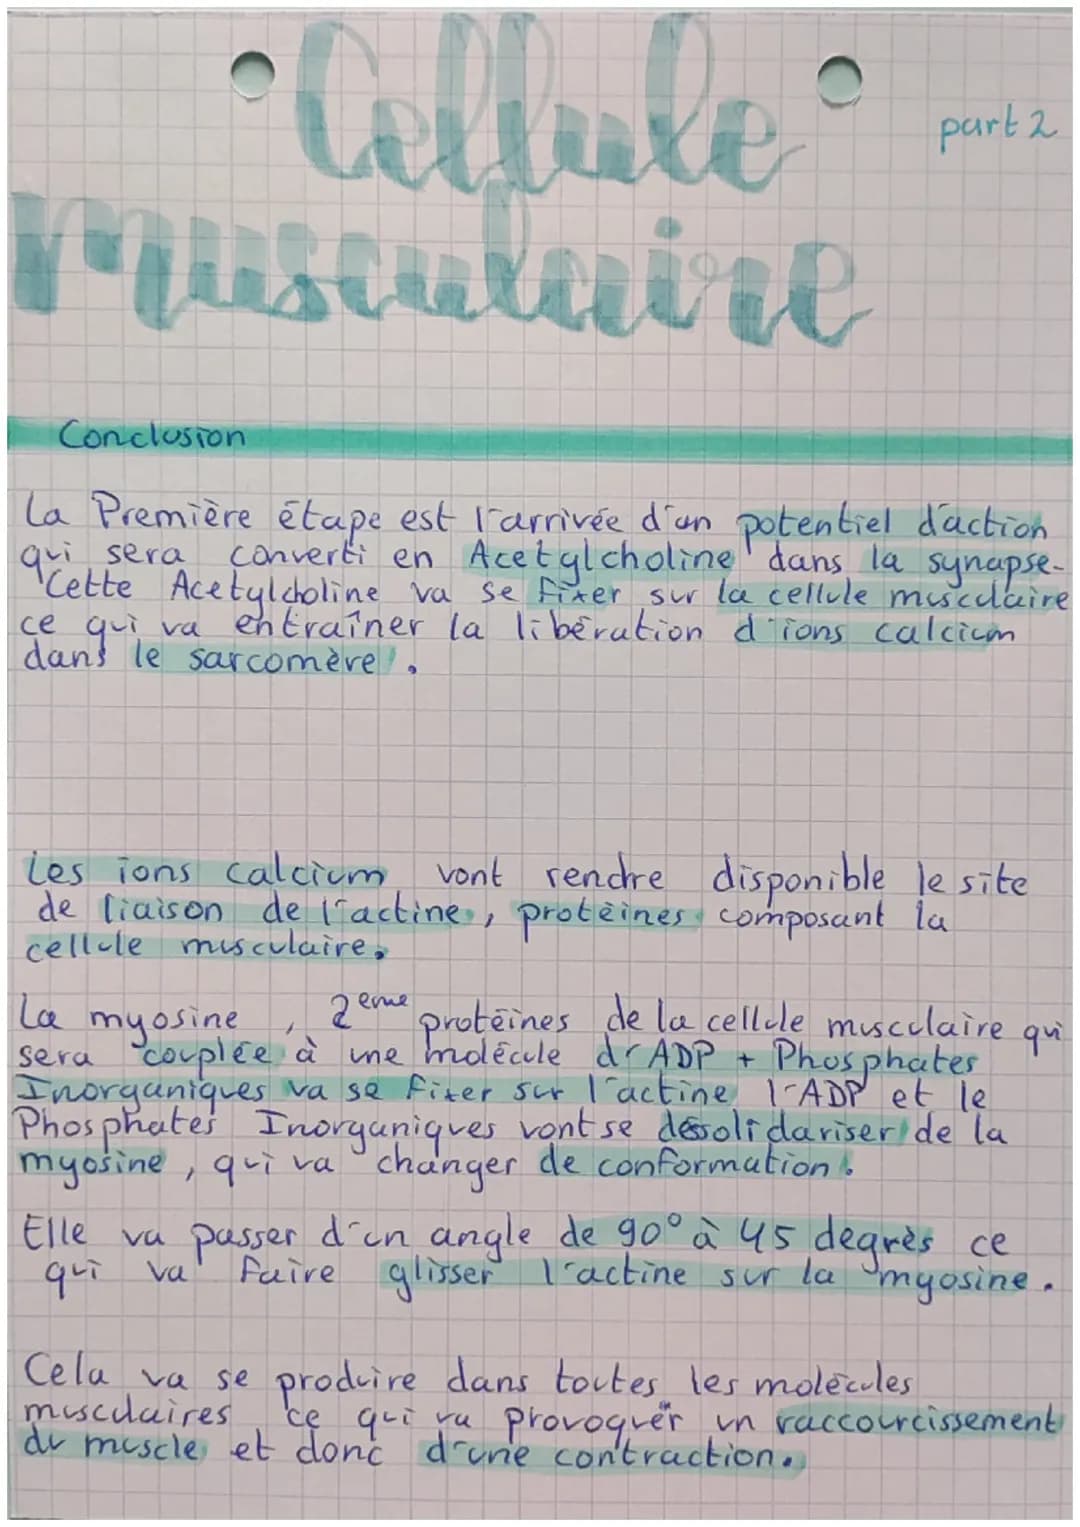 Cellule
part 2
musculaire
Conclusion
La Première étape est l'arrivée d'un potentiel d'action
qui sera converti en Acetylcholine dans la synapse.
Cette Acetylcholine va se fixer sur la cellule musculaire
ce qui va entraîner la libération d'ions calcium
dans le sarcomère.
Les ions calcium vont rendre disponible le site
de liaison de l'actine, protéines composant la
cellule musculaire.
La myosine, 2eme protéines de la cellule musculaire qui
sera couplée à une molécule d'ADP + Phosphates
Inorganiques va se fixer sur l'actine l'ADP et le
Phosphates Inorganiques vont se désolidariser de la
myosine, qui va changer de conformation.
Elle va passer d'un angle de 90° à 45 degrès ce
qui va faire glisser l'actine sur la myosine.
Cela va se produire dans toutes les molécules
musculaires ce qui va provoquer un raccourcissement
du muscle et donc d'une contraction.